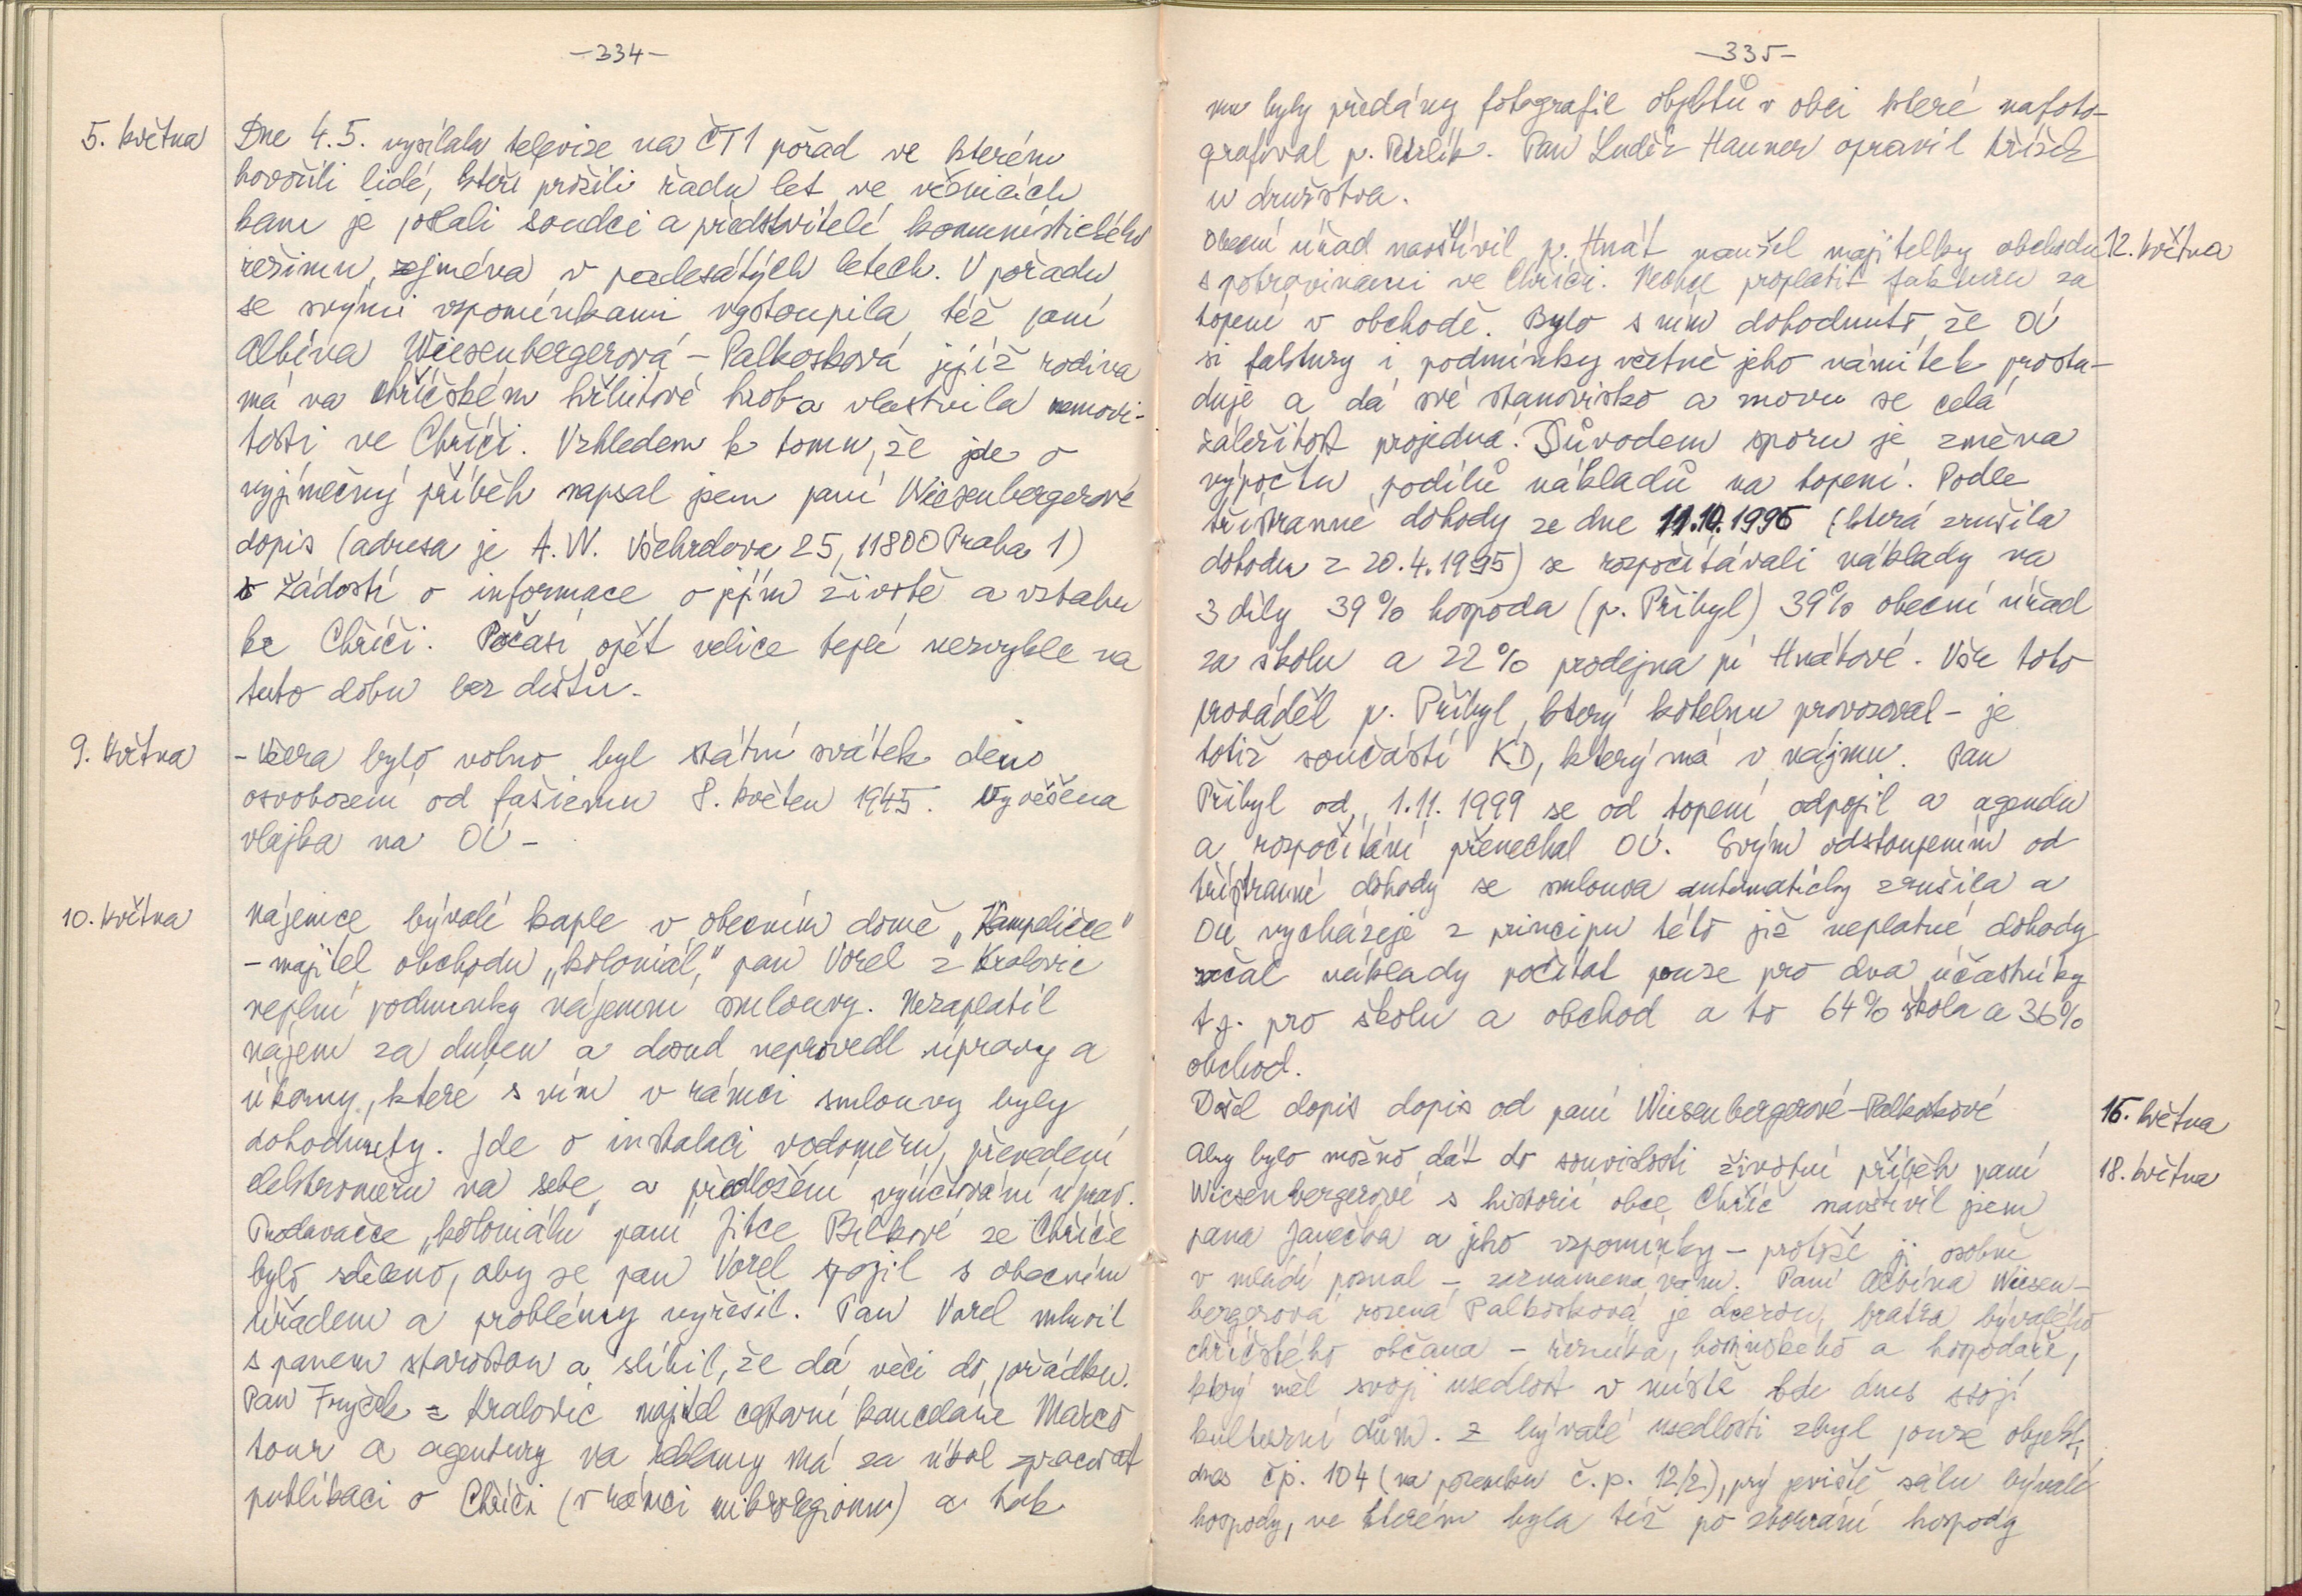 -334-
5. května
Dne 4.5. vysílala televize na ČT1 pořad ve kterém
hovořili lidé, kteří prožili řadu let ve věznicích
kam je poslali soudci a představitelé komunistického
režimu, zejména v padesátých letech. V pořadu
se svými vzpomínkami vystoupila též paní
Albína Wiesenbergerová - Palkosková jejíž rodina
má na chříčském hřbitově hrob a vlastnila nemovi-
tosti ve Chříči. Vzhledem k tomu, že jde o
vyjímečný příběh napsal jsem paní Wiesenbergerové
dopis (adresa je A.W. Všehrdova 25, 11800 Praha 1)
s žádostí o informace o jejím životě a vztahu
ke Chříči. Počasí opět velice teplé nezvykle na
tuto dobu bez dešťů.
9. května
- Včera bylo volno byl státní svátek den
osvobození od fašismu 8. květen 1945. Vyvěšena
vlajka na OÚ -
10. května
Nájemce bývalé kaple v obecním domě „Kampeličce"
- majitel obchodu „koloniál," pan Vorel z Kralovic
neplní podmínky nájemní smlouvy. Nezaplatil
nájem za duben a dosud neprovedl úpravy a
úkony, které s ním v rámci smlouvy byly
dohodnuty. Jde o instalaci vodoměru, převedení
elektroměru na sebe a předložení vyúčtování úprav.
Prodavačce „koloniálu" paní Jitce Bílkové ze Chříče
bylo sděleno, aby se pan Vorel spojil s obecním
úřadem a problémy vyřešil. Pan Vorel mluvil
s panem starostou a slíbil, že dá věci do pořádku.
Pan Fryček z Kralovic majitel cestovní kanceláře Marco
tour a agentury na reklamy má za úkol zpracovat
publikaci o Chříči (v rámci mikroregionu) a tak
-335-
mu byly předány fotografie objektů v obci které nafoto-
grafoval p. Petrlík. Pan Luděk Hanner opravil křížek
u družstva.
12. května
Obecní úřad navštívil p. Hnát manžel majitelky obchodu
s potravinami ve Chříči. Nechce proplatit fakturu za
topení v obchodě. Bylo s ním dohodnuto, že OÚ
si faktury i podmínky včetně jeho námitek prostu-
duje a dá své stanovisko a znovu se celá
záležitost projedná. Důvodem sporu je změna
výpočtu podílů nákladů na topení. Podle
třístranné dohody ze dne 11.10.1996 (která zrušila
dohodu z 20.4.1995) se rozpočítávali náklady na
3 díly 39% hospoda (p. Přibyl) 39% obecní úřad
za školu a 22% prodejna pí Hnátové. Vše toto
prováděl p. Přibyl, který kotelnu provozoval - je
totiž součástí KD, který má v nájmu. Pan
Přibyl od 1.11.1999 se od topení odpojil a agendu
a rozpočítání přenechal OÚ. Svým odstoupením od
třístranné dohody se smlouva automaticky zrušila a
OÚ vycházeje z principu této již neplatné dohody
začal náklady počítat pouze pro dva účastníky
t.j. pro školu a obchod a to 64% škola a 36%
obchod.
16. května
Došel dopis dopis od paní Wiesenbergerové-Palkoskové
18. května
Aby bylo možno dát do souvislosti životní příběh paní
Wiesenbergerové s historií obce Chříč navštívil jsem
pana Janečka a jeho vzpomínky - protože ji osobně
v mládí poznal - zaznamenávám. Paní Albína Wiesen-
bergerová rozená Palkosková je dcerou bratra bývalého
chříčského občana - řezníka, hostinského a hospodáře,
který měl svoji usedlost v místě kde dnes stojí
kulturní dům. Z bývalé usedlosti zbyl pouze objekt,
dnes čp. 104 (na pozemku č.p. 12/2), prý jeviště sálu bývalé
hospody, ve kterém byla též po zbourání hospody